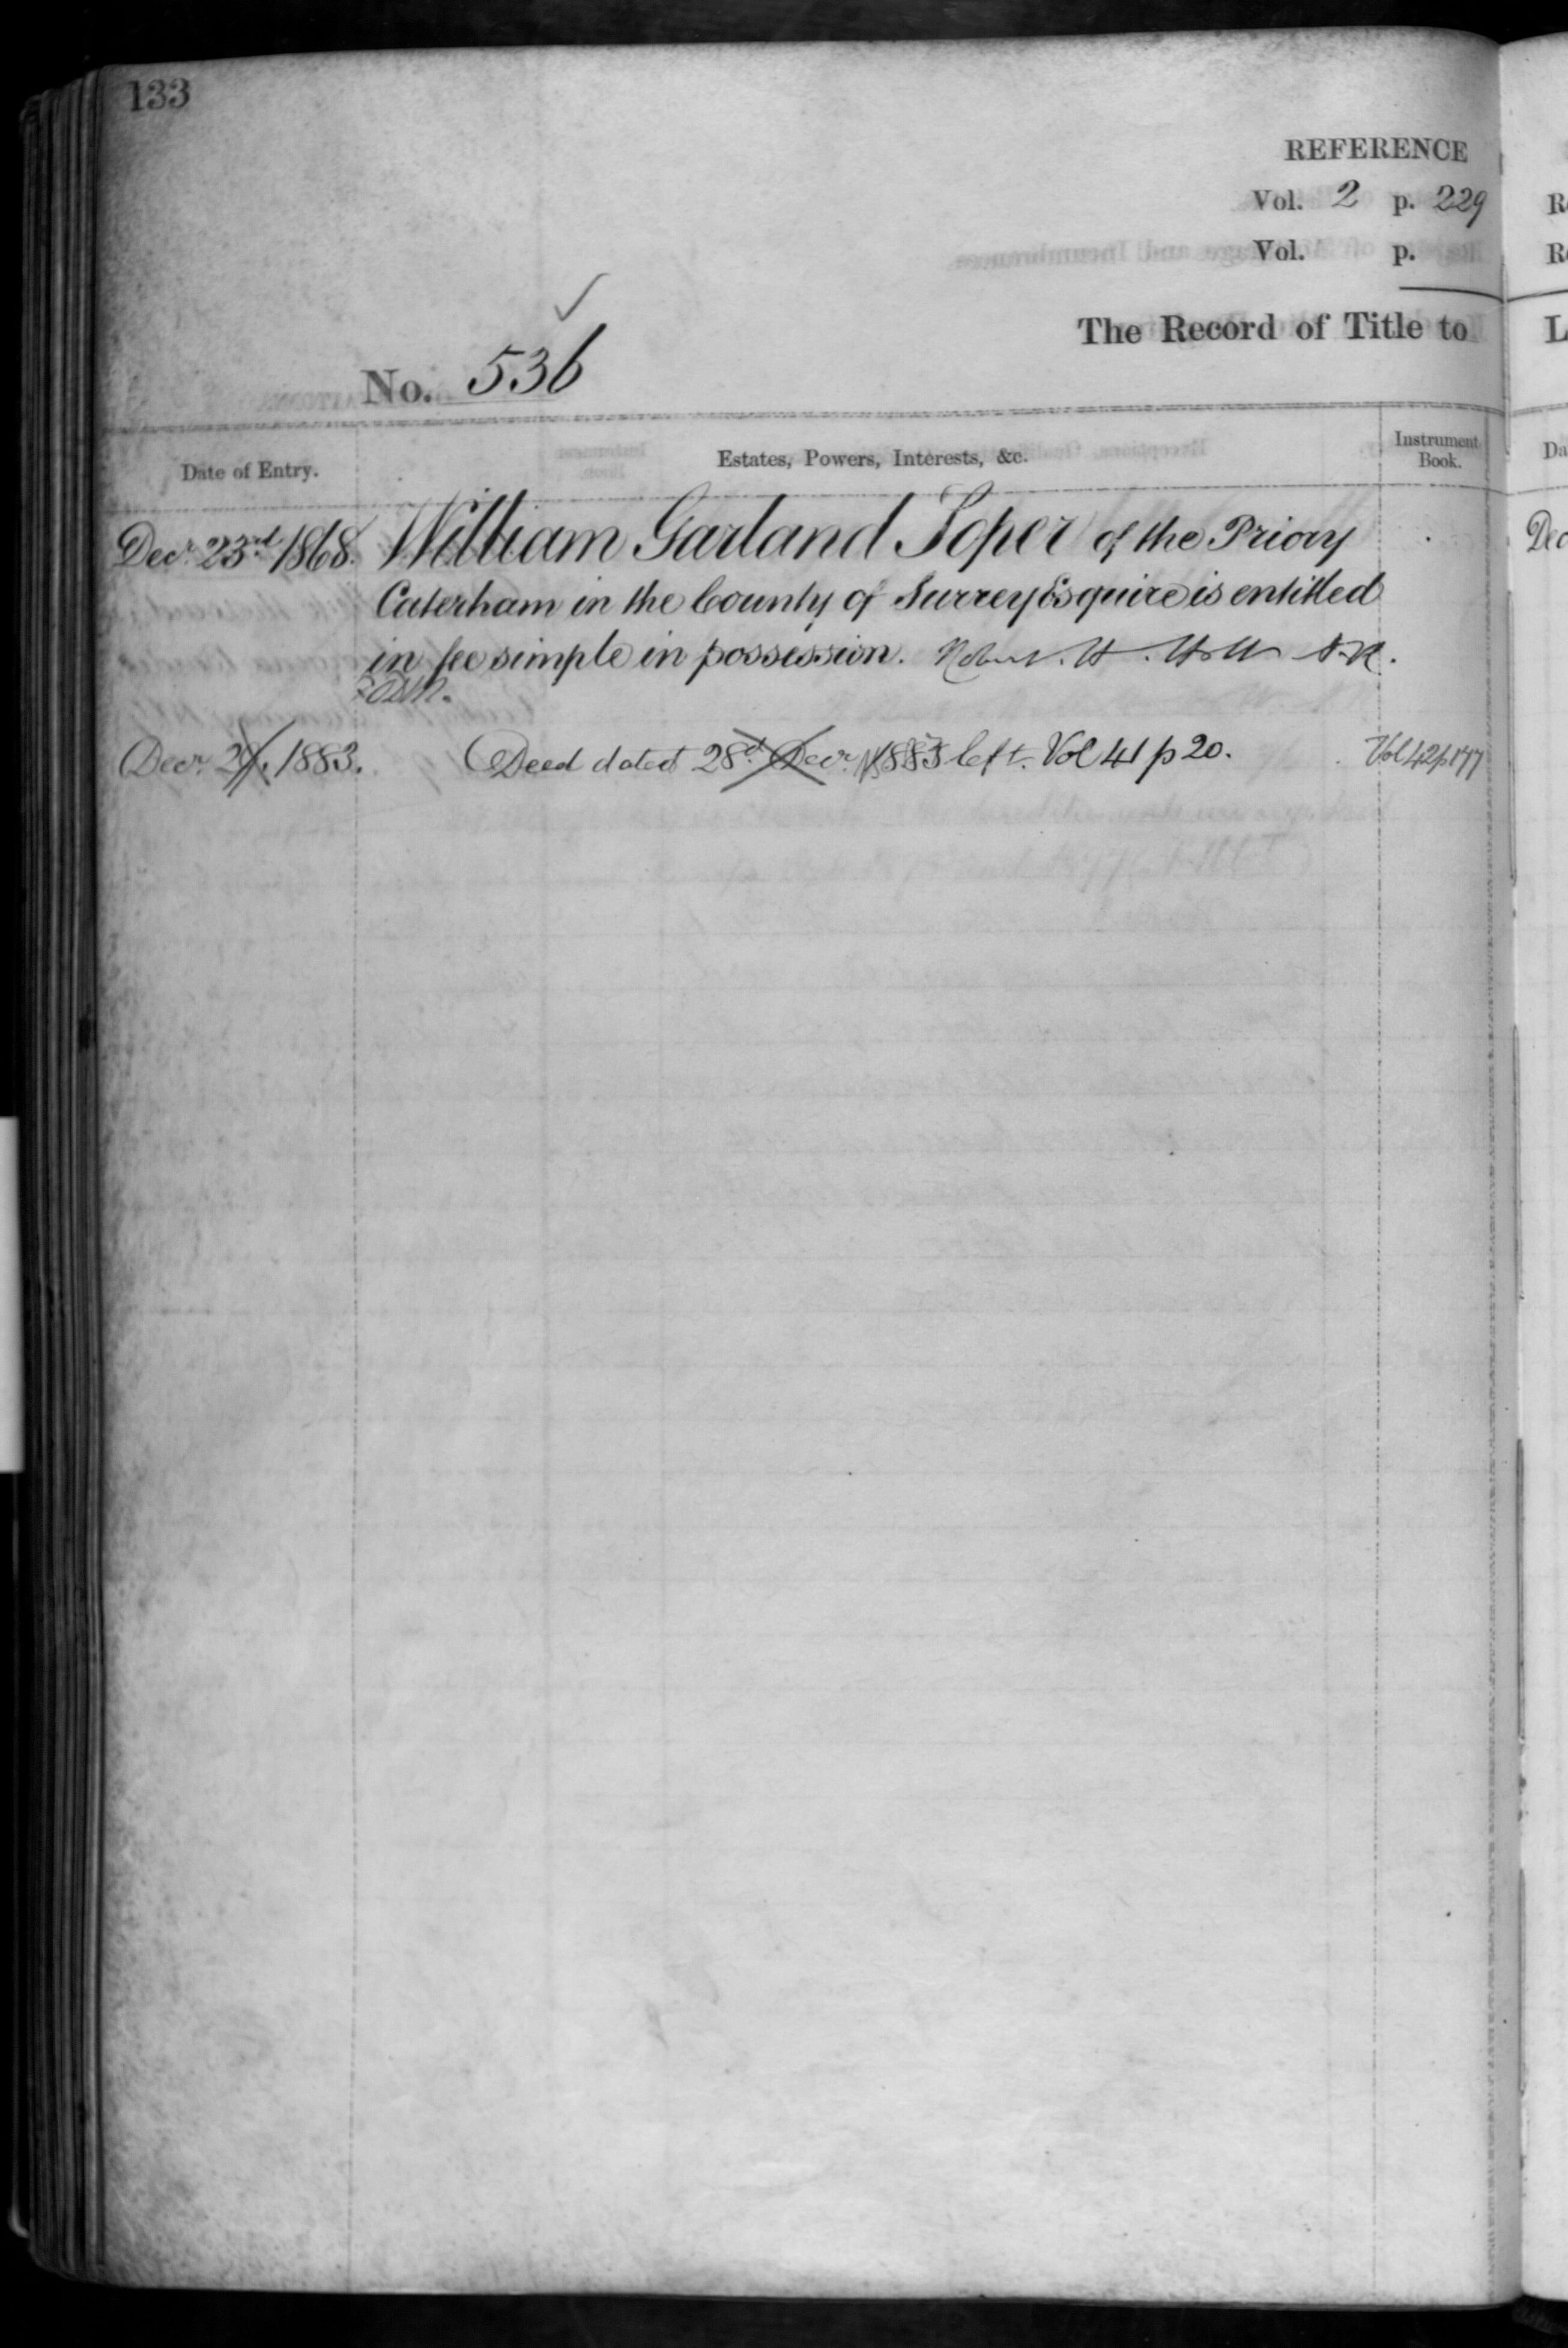 133
REFERENCE
Vol. 2 p. 229
Vol. p.
The Record of Title to
No. 536
Date of Entry.
Estates, Powers, Interests, &c.
Instrument Book.
Decr. 23rd 1868. William Garland Soper of the Priory
Caterham in the County of Surrey Esquire is entitled
in fee simple in possession. Robert. H. Holt A.R.
Decr. 1883. Deed dated 28th Decr. 1883 left. Vol 41 p 20. Vol 42 p 177